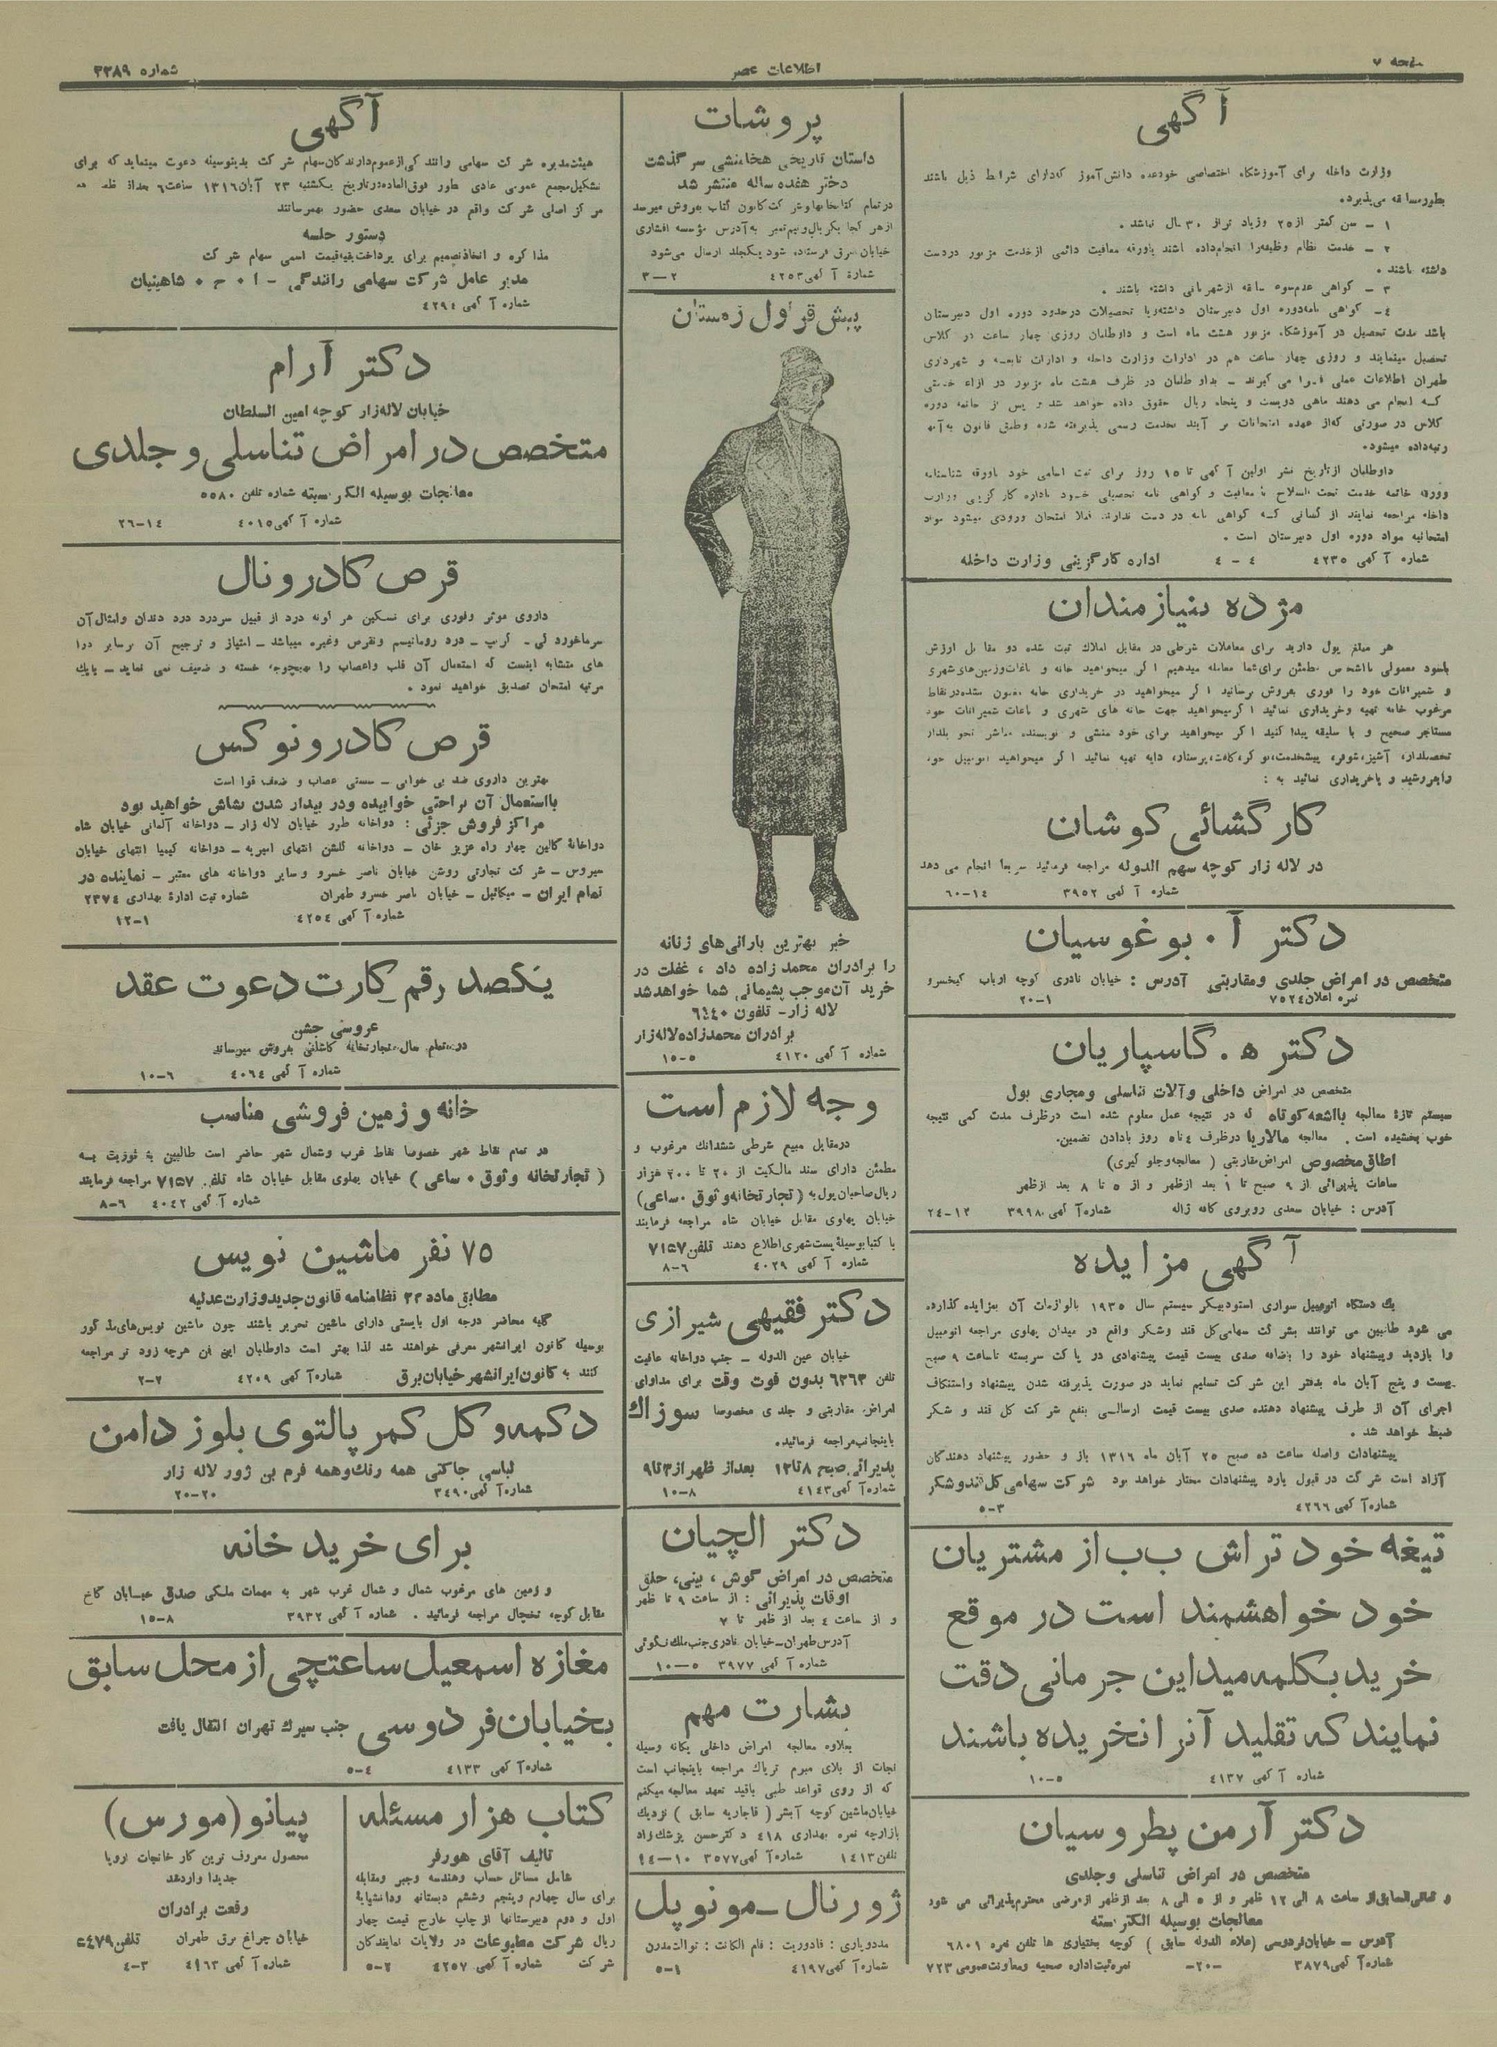 صفحه ۷
اطلاعات عصر
شماره ۳۳۸۹
آگهی
وزارت داخله برای آموزشگاه اختصاصی خود عده دانش‌آموز که دارای شرایط ذیل باشند
بطور مسابقه می‌پذیرد.
۱ – سن کمتر از ۲۵ و زیادتر از ۳۰ سال نباشد .
۲ – خدمت نظام وظیفه را انجام داده باشند یا ورقه معافیت دائمی از خدمت مزبور در دست
داشته باشند .
۳ – گواهی عدم سوء سابقه از شهربانی داشته باشند .
٤ – گواهی نامه دوره اول دبیرستان داشته و یا تحصیلات در حدود دوره اول دبیرستان
باشد مدت تحصیل در آموزشگاه مزبور هشت ماه است و داوطلبان روزی چهار ساعت در کلاس
تحصیل مینمایند و روزی چهار ساعت هم در ادارات وزارت داخله و ادارات تابعه و شهرداری
طهران اطلاعات عملی فرا می گیرند – بداوطلبان در ظرف هشت ماه مزبور در ازاء خدمتی
که انجام می دهند ماهی دویست و پنجاه ریال حقوق داده خواهد شد و پس از خاتمه دوره
کلاس در صورتی که از عهده امتحانات بر آیند بخدمت رسمی پذیرفته شده و طبق قانون به آنها
رتبه داده میشود.
داوطلبان از تاریخ نشر اولین آگهی تا ۱۵ روز برای ثبت اسامی خود با ورقه شناسنامه
و ورقه خاتمه خدمت تحت السلاح یا معافیت و گواهی نامه تحصیلی خود باداره کارگزینی وزارت
داخله مراجعه نمایند از کسانی که گواهی نامه در دست ندارند قبلا امتحان ورودی میشود مواد
امتحانیه مواد دوره اول دبیرستان است .
شماره آگهی ٤٢٣٥ ٤ – ٤ اداره کارگزینی وزارت داخله
مژده بنیازمندان
هر مبلغ پول دارید برای معاملات شرطی در مقابل املاک ثبت شده دو مقابل ارزش
باسود معمولی با اشخاص مطمئن برای شما معامله میدهیم اگر میخواهید خانه و باغات و زمین‌های شهری
و شمیرانات خود را فوری بفروش برسانید اگر میخواهید در خریداری خانه مغبون نشده در نقاط
مرغوب خانه تهیه و خریداری نمائید اگر میخواهید جهت خانه های شهری و باغات شمیرانات خود
مستاجر صحیح و با سلیقه پیدا کنید اگر میخواهید برای خود منشی و نویسنده مباشر نحو بلدار
تحصیلدار، آشپز، شوفر، پیشخدمت، نوکر، کلفت، پرستار، دایه تهیه نمائید اگر میخواهید اتومبیل خود
را بفروشید و یا خریداری نمائید به :
کارگشائی کوشان
در لاله زار کوچه سهم الدوله مراجعه فرمائید سریعا انجام می دهد
شماره آگهی ۳۹۵۲ ۱٤–٦٠
دکتر آ. بوغوسیان
متخصص در امراض جلدی و مقاربتی آدرس : خیابان نادری کوچه ارباب کیخسرو
نمره اعلان ٧٥٢٤ ۱–۲۰
دکتر ه. گاسپاریان
متخصص در امراض داخلی و آلات تناسلی و مجاری بول
سیستم تازۀ معالجه با اشعه کوتاه که در نتیجه عمل معلوم شده است در ظرف مدت کمی نتیجه
خوب بخشیده است . معالجه مالاریا در ظرف ٤ تا ۵ روز با دادن تضمین.
اطاق مخصوص امراض مقاربتی ( معالجه و جلو گیری)
ساعات پذیرائی از ۹ صبح تا ۱ بعد از ظهر و از ۵ تا ۸ بعد از ظهر
آدرس : خیابان سعدی روبروی کافه ژاله شماره آگهی ۳۹۹۸ ۱۲–۲٤
آگهی مزایده
یک دستگاه اتومبیل سواری استودیبیکر سیستم سال ۱۹۳۵ با لوازمات آن بمزایده گذارده
می شود طالبین می توانند بشرکت سهامی کل قند و شکر واقع در میدان پهلوی مراجعه اتومبیل
را بازدید و پیشنهاد خود را بضافه صدی بیست قیمت پیشنهادی در پاکت سربسته تا ساعت ۹ صبح
بیست و پنج آبان ماه بدفتر این شرکت تسلیم نماید در صورت پذیرفته شدن پیشنهاد و استنکاف
اجرای آن از طرف پیشنهاد دهنده صدی بیست قیمت ارسالی بنفع شرکت کل قند و شکر
ضبط خواهد شد .
پیشنهادات واصله ساعت ده صبح ۲۵ آبان ماه ۱۳۱٦ باز و حضور پیشنهاد دهندگان
آزاد است شرکت در قبول یا رد پیشنهادات مختار خواهد بود شرکت سهامی کل قند و شکر
شماره آگهی ٤٢٦٦ ۳–۵
تیغه خود تراش ب‌ب از مشتریان
خود خواهشمند است در موقع
خرید بکلمه مید این جرمانی دقت
نمایند که تقلید آنرا نخریده باشند
شماره آگهی ٤۱۳۷ ۵–۱۰
دکتر آرمن پطروسیان
متخصص در امراض تناسلی و جلدی
کمافی‌السابق از ساعت ۸ الی ۱۲ ظهر و از ۵ الی ۸ بعد از ظهر از مرضی محترم پذیرائی می شود
معالجات بوسیله الکتریسته
آدرس – خیابان فردوسی (علاء الدوله سابق ) کوچه بختیاری ها تلفن نمره ٦٨٠١
شماره آگهی ۳۸۷۹ –۲۰– نمره ثبت اداره صحیه و معاونت عمومی ۷۲۳
پروشات
داستان تاریخی هخامنشی سرگذشت
دختر هفده ساله منتشر شد
در تمام کتابخانها و شرکت کانون کتاب بفروش میرسد
از هر کجا یکریال و نیم تمبر به آدرس مؤسسه افشاری
خیابان برق فرستاده شود یکجلد ارسال می‌شود
شماره آگهی ٤٢٥٣ ۲–۳
پیش قراول زمستان
خبر بهترین بارانی‌های زنانه
را برادران محمد زاده داد ، غفلت در
خرید آن موجب پشیمانی شما خواهد شد
لاله زار – تلفون ٦١٤٠
برادران محمدزاده لاله زار
شماره آگهی ٤١٢٠ ۵–۱۵
وجه لازم است
در مقابل مبیع شرطی ششدانک مرغوب و
مطمئن دارای سند مالکیت از ۲۰ تا ۲۰۰ هزار
ریال صاحبان پول به (تجارتخانه وثوق . ساعی)
خیابان پهلوی مقابل خیابان شاه مراجعه فرمایند
یا کتبا بوسیله پست شهری اطلاع دهند تلفن ۷۱۵۷
شماره آگهی ٤٠٣٩ ٦–۸
دکتر فقیهی شیرازی
خیابان عین الدوله – جنب دواخانه عافیت
تلفن ٦٢٦٣ بدون فوت وقت برای مداوای
امراض مقاربتی و جلدی مخصوصا سوزاک
باینجانب مراجعه فرمائید.
پذیرائی صبح ۸ تا ۱۲ بعد از ظهر از ۳ تا ۹
شماره آگهی ٤١٤٣ ۸–۱۰
دکتر الچیان
متخصص در امراض گوش ، بینی، حلق
اوقات پذیرائی : از ساعت ۹ تا ظهر
و از ساعت ٤ بعد از ظهر تا ۷
آدرس طهران – خیابان نادری جنب ملک نگوئی
شماره آگهی ۳۹۷۷ ۵–۱۰
بشارت مهم
بعلاوه معالجه امراض داخلی یگانه وسیله
نجات از بلای مبرم تریاک مراجعه باینجانب است
که از روی قواعد طبی باقید تعهد معالجه میکنم
خیابان ماشین کوچه آبشر ( قاجاریه سابق ) نزدیک
بازارچه نمره بهداری ٤١٨ دکتر حسن پزشک زاد
تلفن ۱٤۱۳ شماره آگهی ۳۵۷۷ ۱۰–۹٤
ژورنال – مونوپل
مددو پاری : فادوریت : فام الکانت : توالت مدرن
شماره آگهی ٤١٩٧ ۱–۵
آگهی
هیئت مدیره شرکت سهامی رانندگی از عموم دارندگان سهام شرکت بدینوسیله دعوت مینماید که برای
تشکیل مجمع عمومی عادی بطور فوق العاده در تاریخ یکشنبه ۲۳ آبان ۱۳۱٦ ساعت ٦ بعد از ظهر به
مرکز اصلی شرکت واقع در خیابان سعدی حضور بهمرسانند
دستور جلسه
مذاکره و اتخاذ تصمیم برای پرداخت بقیه قیمت اسمی سهام شرکت
مدیر عامل شرکت سهامی رانندگی – ا . م . شاهینیان
شماره آگهی ٤٢٩٤
دکتر آرام
خیابان لاله زار کوچه امین السلطان
متخصص در امراض تناسلی و جلدی
معالجات بوسیله الکتریسیته شماره تلفن ۵۵۸۰
شماره آگهی ٤٠١٥ ۱٤–۲٦
قرص کادرونال
داروی موثر و فوری برای تسکین هر گونه درد از قبیل سردرد درد دندان و امثال آن
سرماخوردگی – گریپ – درد روماتیسم و نقرس و غیره میباشد – امتیاز و ترجیح آن بر سایر دوا
های متشابه اینست که استعمال آن قلب و اعصاب را بهیچوجه خسته و ضعیف نمی نماید – با یک
مرتبه امتحان تصدیق خواهید نمود .
قرص کادرونوکس
بهترین داروی ضد بی خوابی – سستی اعصاب و ضعف قوا است
با استعمال آن براحتی خوابیده و در بیدار شدن بشاش خواهید بود
مراکز فروش جزئی : دواخانه طور خیابان لاله زار – دواخانه آلمانی خیابان شاه
دواخانۀ گالین چهار راه عزیز خان – دواخانه گلشن انتهای امیریه – دواخانه کیمیا انتهای خیابان
سیروس – شرکت تجارتی روشن خیابان ناصر خسرو و سایر دواخانه های معتبر – نماینده در
تمام ایران – میکائیل – خیابان ناصر خسرو طهران شماره ثبت ادارۀ بهداری ٢٣٧٤
شماره آگهی ٤٢٥٤ ۱–۱۲
یکصد رقم کارت دعوت عقد
عروسی جشن
در تمام سال تجارتخانه کاشانی بفروش میرساند
شماره آگهی ٤٠٦٤ ٦–۱۰
خانه و زمین فروشی مناسب
در تمام نقاط شهر خصوصا نقاط غرب و شمال شهر حاضر است طالبین به فوریت به
( تجارتخانه وثوق . ساعی ) خیابان پهلوی مقابل خیابان شاه تلفن ۷۱۵۷ مراجعه فرمایند
شماره آگهی ٤٠٤٢ ٦–۸
۷۵ نفر ماشین نویس
مطابق ماده ۲۲ نظامنامه قانون جدید وزارت عدلیه
کلیه محاضر درجه اول بایستی دارای ماشین تحریر باشند چون ماشین نویس‌های مذکور
بوسیله کانون ایرانشهر معرفی خواهند شد لذا بهتر است داوطلبان این فن هرچه زود تر مراجعه
کنند به کانون ایرانشهر خیابان برق شماره آگهی ٤٢٠٩ ۲–۲
دکمه و گل کمر پالتوی بلوز دامن
لباسی جاکتی همه رنگ و همه فرم بن ژور لاله زار
شماره آگهی ۳٤۹۰ ۲۰–۲۰
برای خرید خانه
و زمین های مرغوب شمال و شمال غرب شهر به مهمات ملکی صدقی خیابان کاخ
مقابل کوچه یخچال مراجعه فرمائید . شماره آگهی ۳۹۳۲ ۸–۱۵
مغازه اسمعیل ساعتچی از محل سابق
بخیابان فردوسی جنب سیرک تهران انتقال یافت
شماره آگهی ٤١٣٣ ٤–۵
کتاب هزار مسئله
تالیف آقای هورفر
شامل مسائل حساب و هندسه و جبر و مقابله
برای سال چهارم و پنجم و ششم دبستانها و دانشپایۀ
اول و دوم دبیرستانها از چاپ خارج قیمت چهار
ریال شرکت مطبوعات در ولایات نمایندگان
شرکت شماره آگهی ٤٢٥٧ ۲–۵
پیانو (مورس)
محصول معروف ترین کارخانجات اروپا
جدیدا وارد شد
رفعت برادران
خیابان چراغ برق طهران تلفن
شماره آگهی ٤١٦٣ ۳–٤